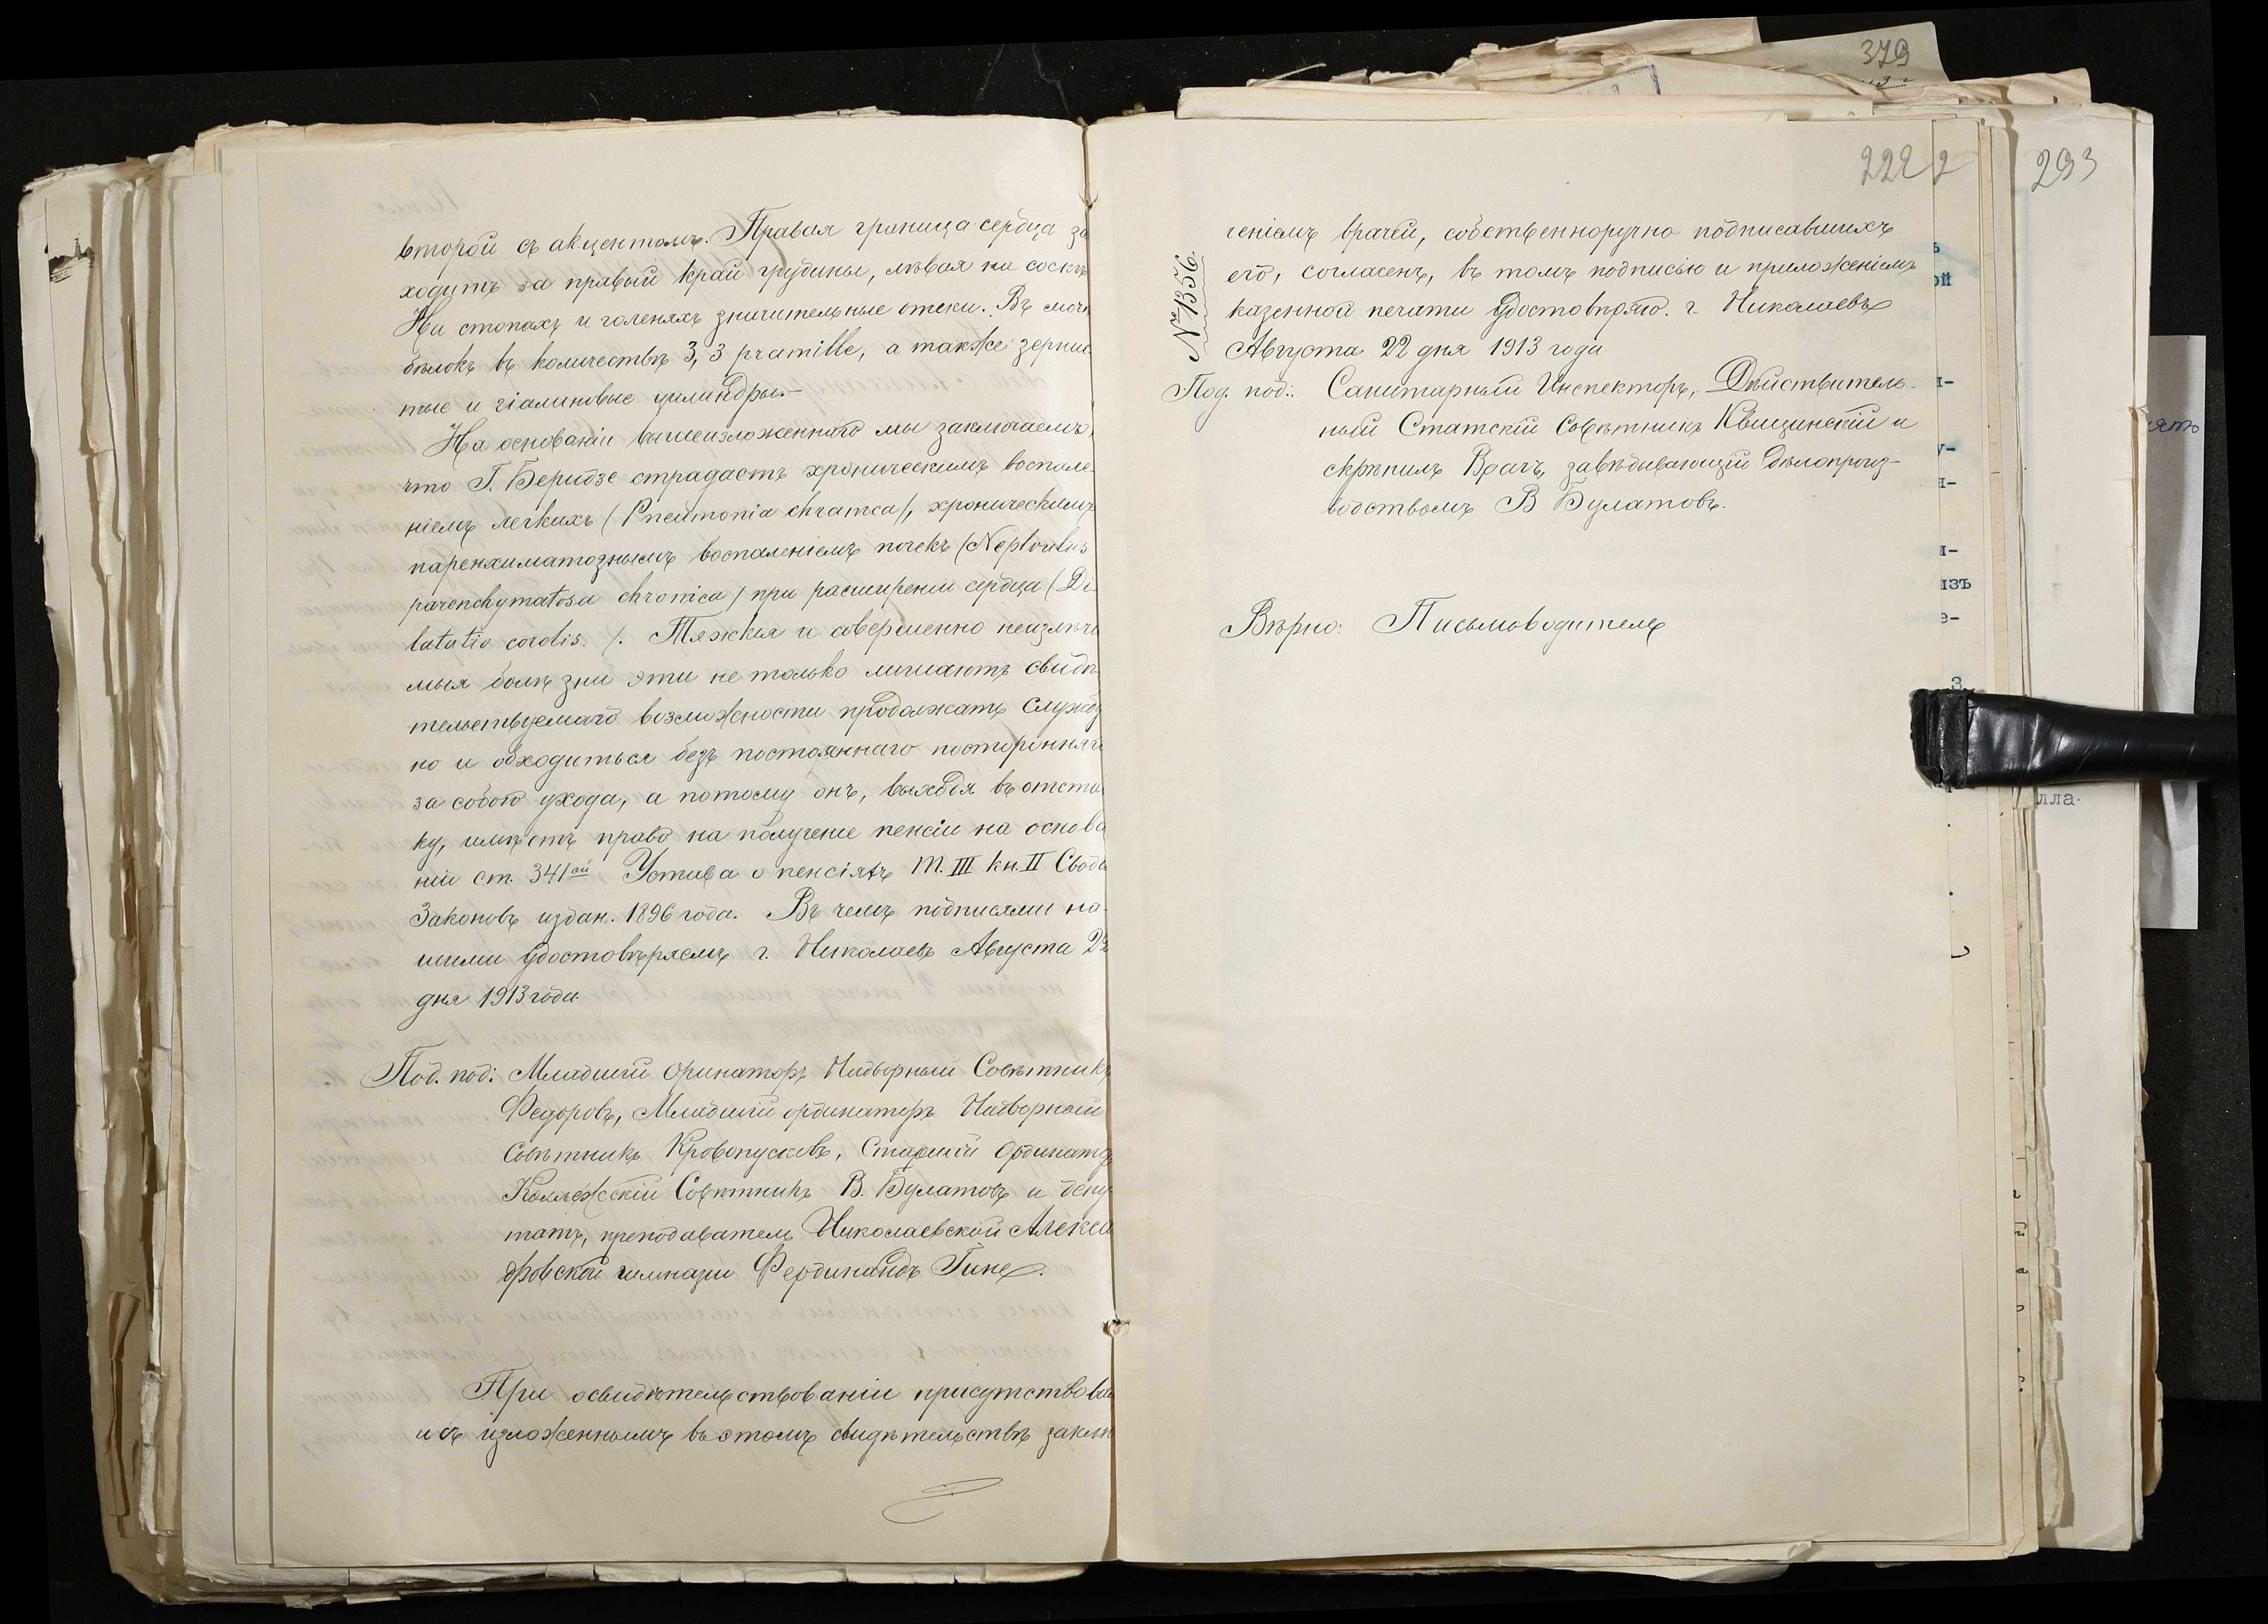 второй съ акцентомъ. Правая граница сердца за
ходитъ за правый край грудины, лѣвая на соскѣ
На стопахъ и голеняхъ значительные отеки. Въ мочѣ
бѣлокъ въ количествѣ 3,3 pramille, а также зернис
тые и гіалиновые цилиндры.–
На основаніи вышеизложеннаго мы заключаемъ,
что Г. Беридзе страдаетъ хроническимъ воспале
ніемъ легкихъ (Pneumonia chramca), хроническимъ
паренхиматознымъ воспаленіемъ почекъ (Nephritis
parenchymatosa chronica) при расширеніи сердца (Di-
latatio cordis.). Тяжкія и совершенно неизлѣчи
мыя болѣзни эти не только лишаютъ свидѣ
тельствуемаго возможности продолжать службу
но и обходиться безъ постояннаго посторонняго
за собою ухода, а потому онъ, выходя въ отстав
ку, имѣетъ право на полученіе пенсіи на основа
ніи ст. 341ой Устава о пенсіяхъ т. III кн. II Свода
Законовъ издан. 1896 года. Въ чемъ подписями на-
шими удостовѣряемъ г. Николаевъ Августа 22
дня 1913 года
Под. под: Младшій ординаторъ Надворный Совѣтникъ
Федоровъ, Младшій ординаторъ Надворный
Совѣтникъ Кровопусковъ, Старшій Ординатор
Коллежскій Совѣтникъ В. Булатовъ и депу-
татъ, преподаватель Николаевской Алекса
дровской гимназіи Фердинандъ Гине.
При освидѣтельствованіи присутствовалъ
и съ изложеннымъ въ этомъ свидѣтельствѣ заклю
379
222 2
293
№ 1356.
ченіемъ врачей, собственноручно подписавшихъ
его, согласенъ, въ томъ подписью и приложеніемъ
казенной печати удостовѣряю. г. Николаевъ
Августа 22 дня 1913 года
Под. под: Санитарный Инспекторъ, Дѣйствитель-
ный Статскій Совѣтникъ Квицинскій и
скрѣпилъ Врачъ, завѣдывающій дѣлопроиз-
водствомъ В Булатовъ.
Вѣрно: Письмоводитель
ъ
ой
-
у-
-
-
изъ
е-
3
лла.
ять